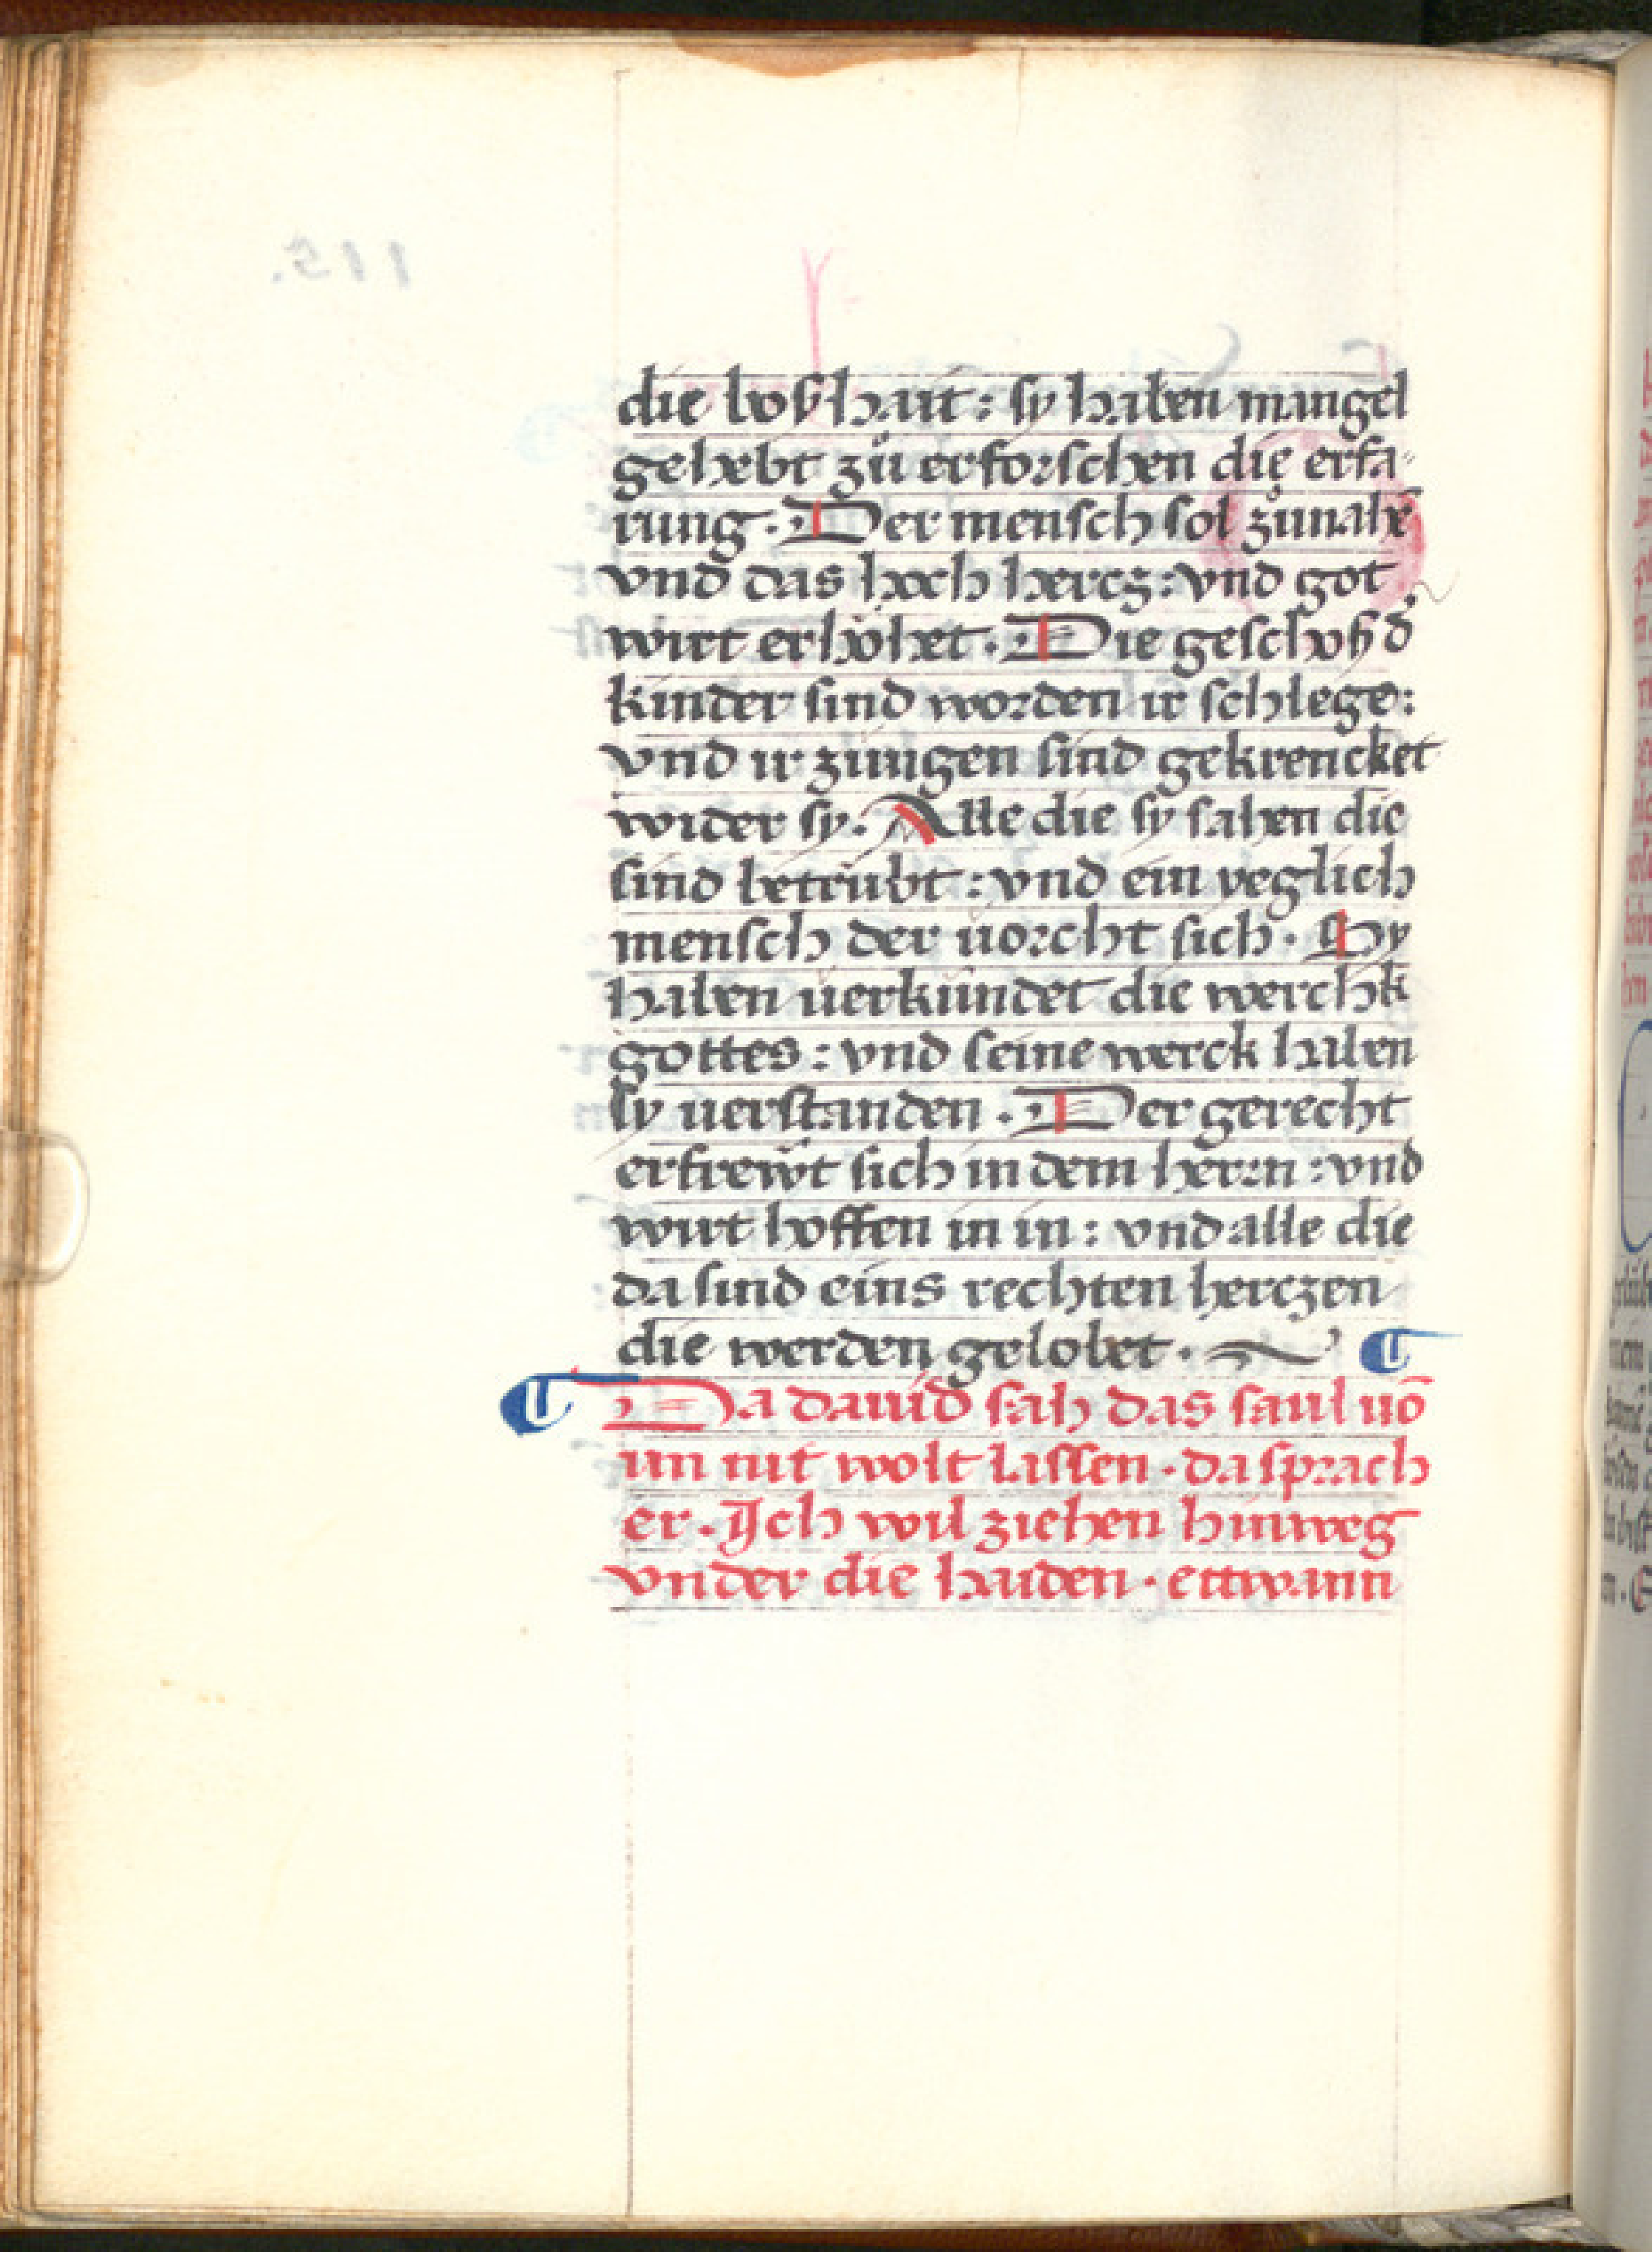 die boßhait : sy haben mangel
gehebt zů erforschen die erfa-
rung . Der mensch sol zůnahē
vnd das hoch hercz : vnd got
wirt erhöhet . Die geschoß d̕
kinder sind worden ir schlege :
vnd ir zungen sind gekrencket
wider sy . Alle die sy sahen die
sind betrübt : vnd ein yeglich
mensch der uorcht sich . Sy
haben uerkündet die werchk
gottes : vnd seine werck haben
sy uerstanden . Der gerecht
erfrewt sich in dem herrn : vnd
wirt hoffen in in : vnd alle die
da sind eins rechten herczen
die werden gelobet .
Da dauid sah das saul uō
im nit wolt lassen . da sprach
er . Jch wil ziehen hinweg
vnder die haiden . ettwann